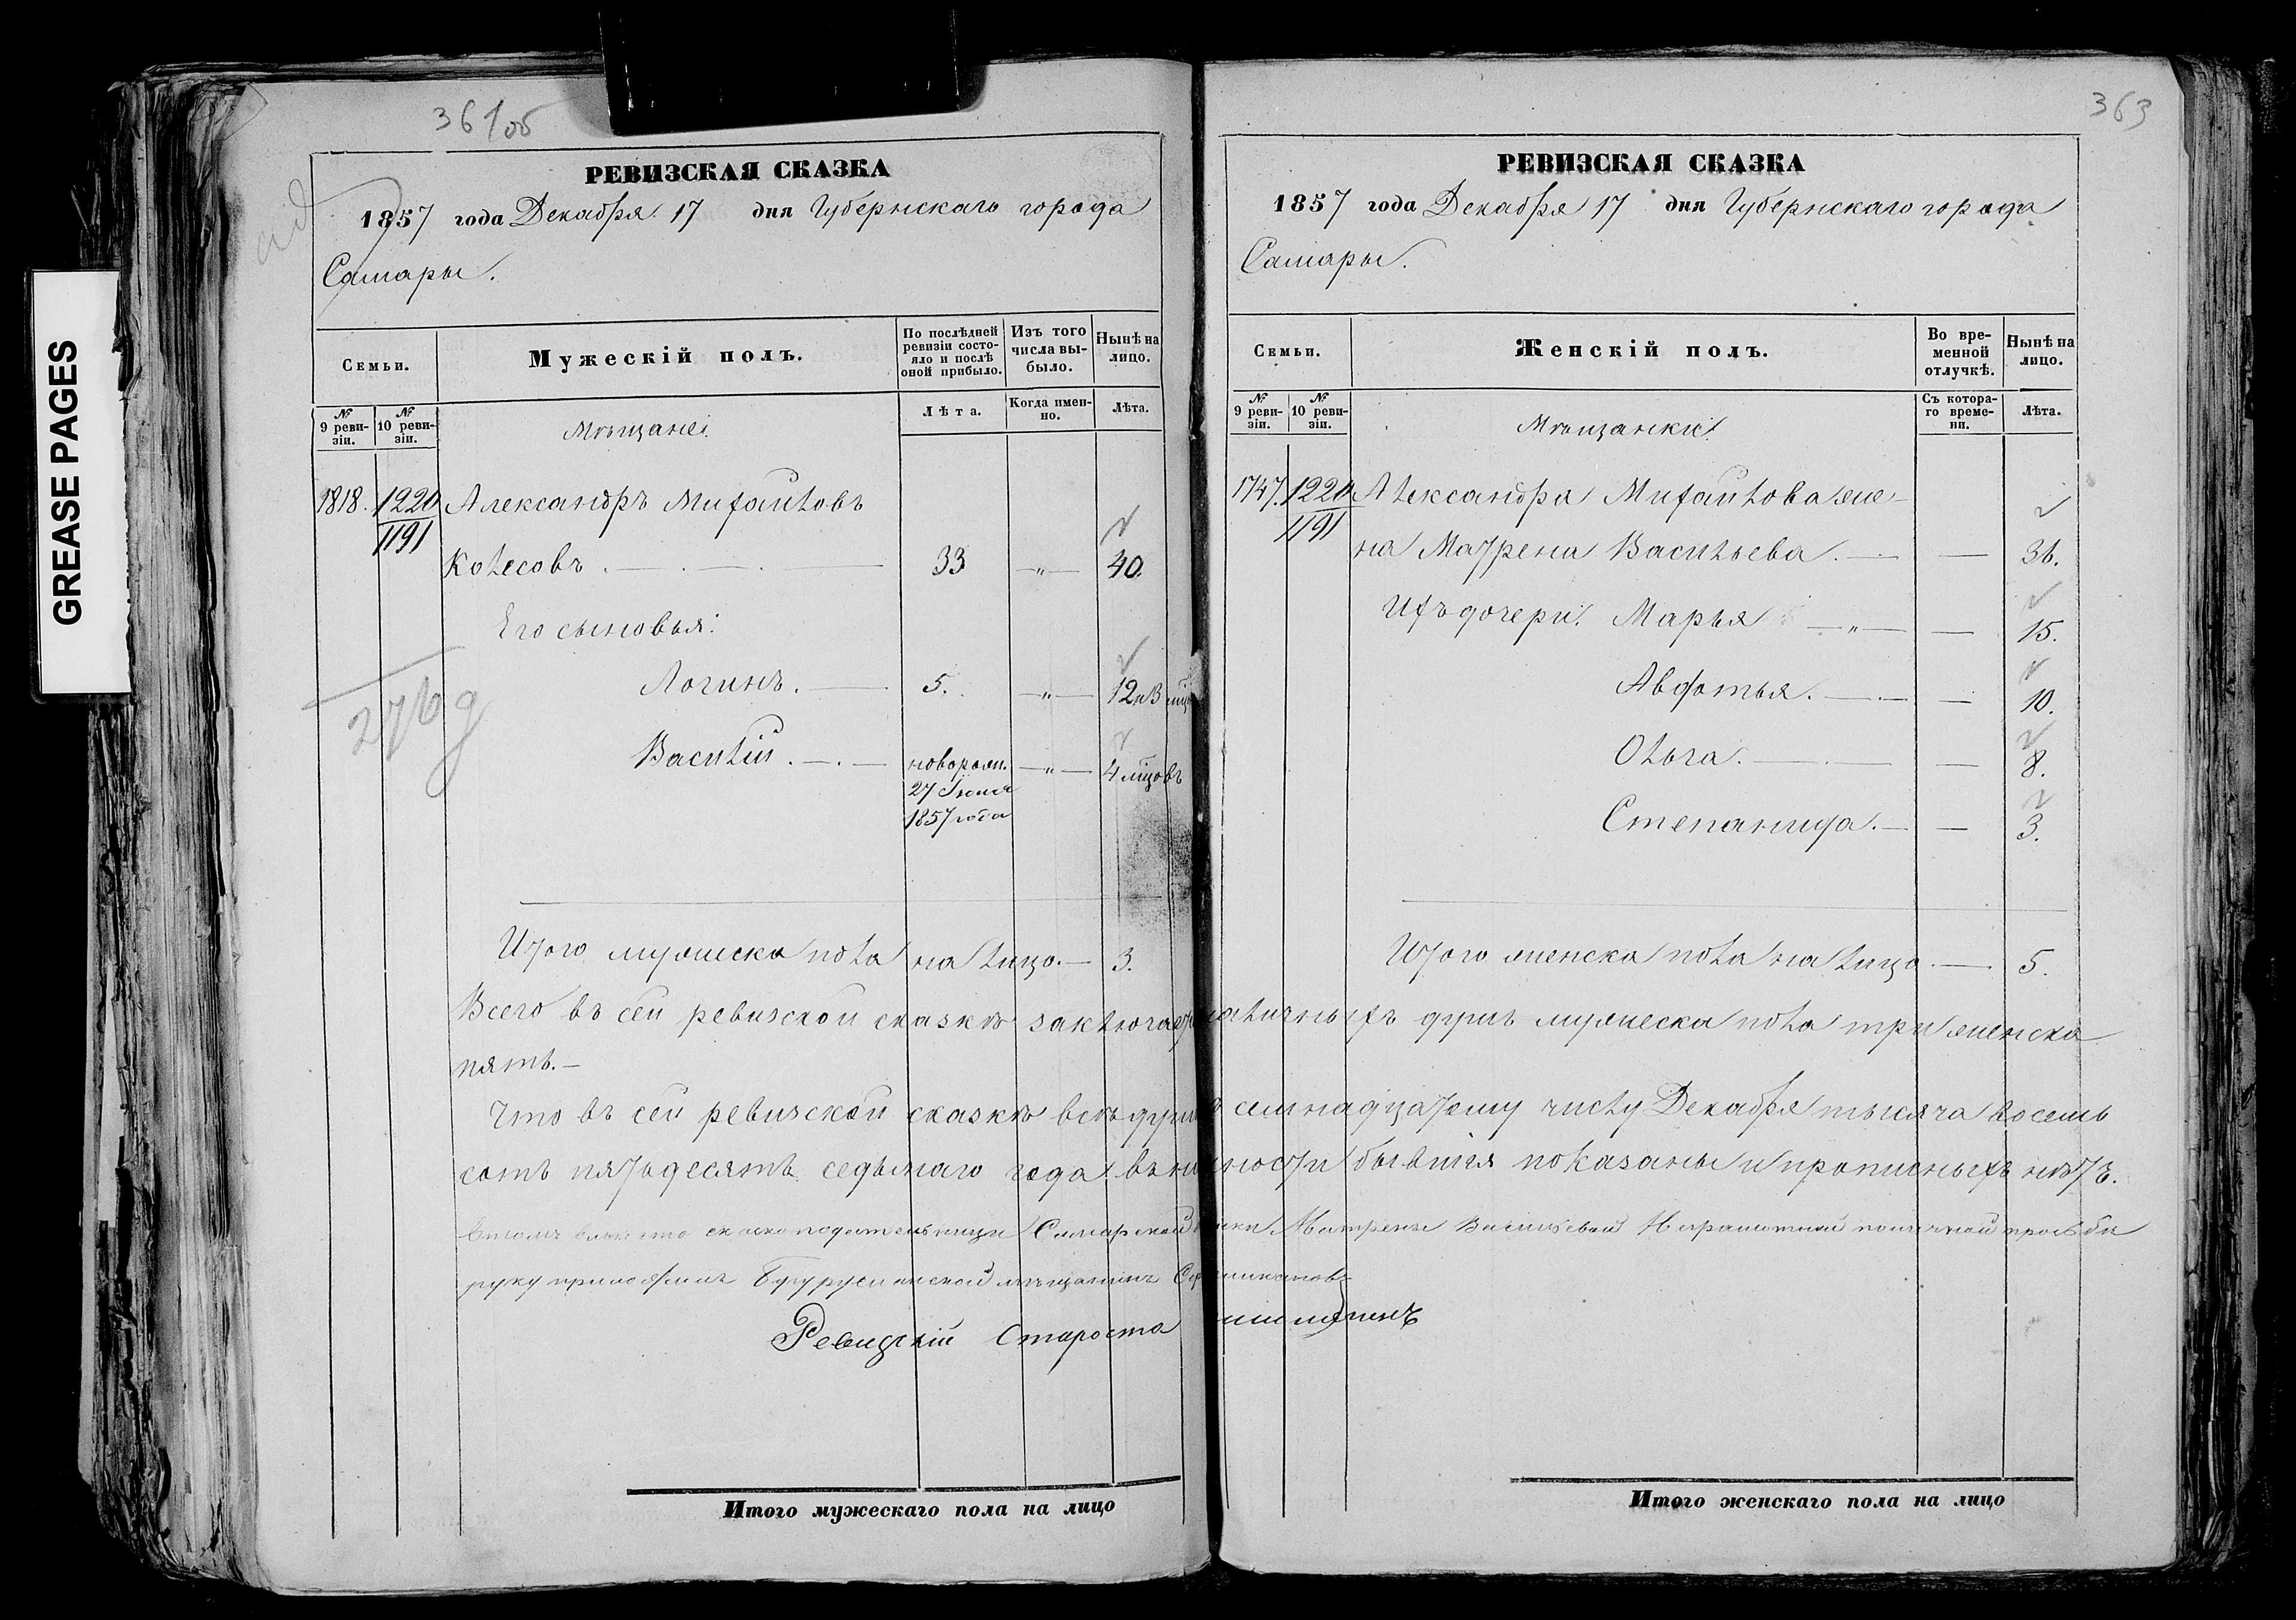 GREASE PAGES
361об
РЕВИЗСКАЯ СКАЗКА
1857 года Декабря 17 дня Губернскаго города
Самары.
Семьи.
Мужескій полъ.
По послѣдней ревизіи состояло и послѣ оной прибыло.
Изъ того числа выбыло.
Нынѣ на лицо.
№ 9 ревизіи.
№ 10 ревизіи.
Мѣщане:
Лѣта.
Когда именно.
Лѣта.
1818. 1220 Александръ Михайловъ
1191
Колесовъ . — . — . — 33 — „ — 40.
Его сыновья:
Логинъ. — 5. — „ — 12
Василій. — . — новорожд. — „ — 4 мѣсцовъ
27 Іюня
1857 года
276
Итого мужеска пола на лицо. — 3.
363
РЕВИЗСКАЯ СКАЗКА
1857 года Декабря 17 дня Губернскаго города
Самары.
Семьи.
Женскій полъ.
Во временной отлучкѣ.
Нынѣ на лицо.
№ 9 ревизіи.
№ 10 ревизіи.
Мѣщанки:
Съ котораго времени.
Лѣта.
1747. 1220 Александра Михайлова же-
1191
на Матрена Васильева. — — 36.
Ихъ дочери: Марья — „ — — 15.
Авдотья. — . — — 10.
Ольга. — . — — 8.
Степанида. — — 3.
Итого женска пола на лицо. — . 5.
Всего въ сей ревизской сказкѣ заключае наличныхъ душъ мужеска пола три женска
пять. —
Что въ сей ревизской сказкѣ всѣ души семнадцатому числу Декабря тысяча восемь
сотъ пятьдесятъ седьмаго года въ на ности бывшія показаны и прописныхъ нѣтъ.
Въ томъ вмѣсто сказкоподательницы Самарской Матрены Васильевой Неграмотной по личной просьбѣ
руку приложилъ Бугурусланской мѣщанинъ
Ревизскій Староста
Итого мужескаго пола на лицо
Итого женскаго пола на лицо